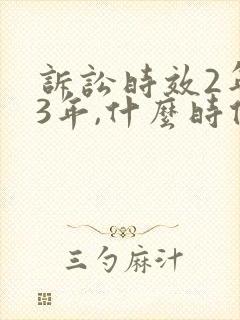 訴訟時效2年
3年,什麼時
三勺麻汁